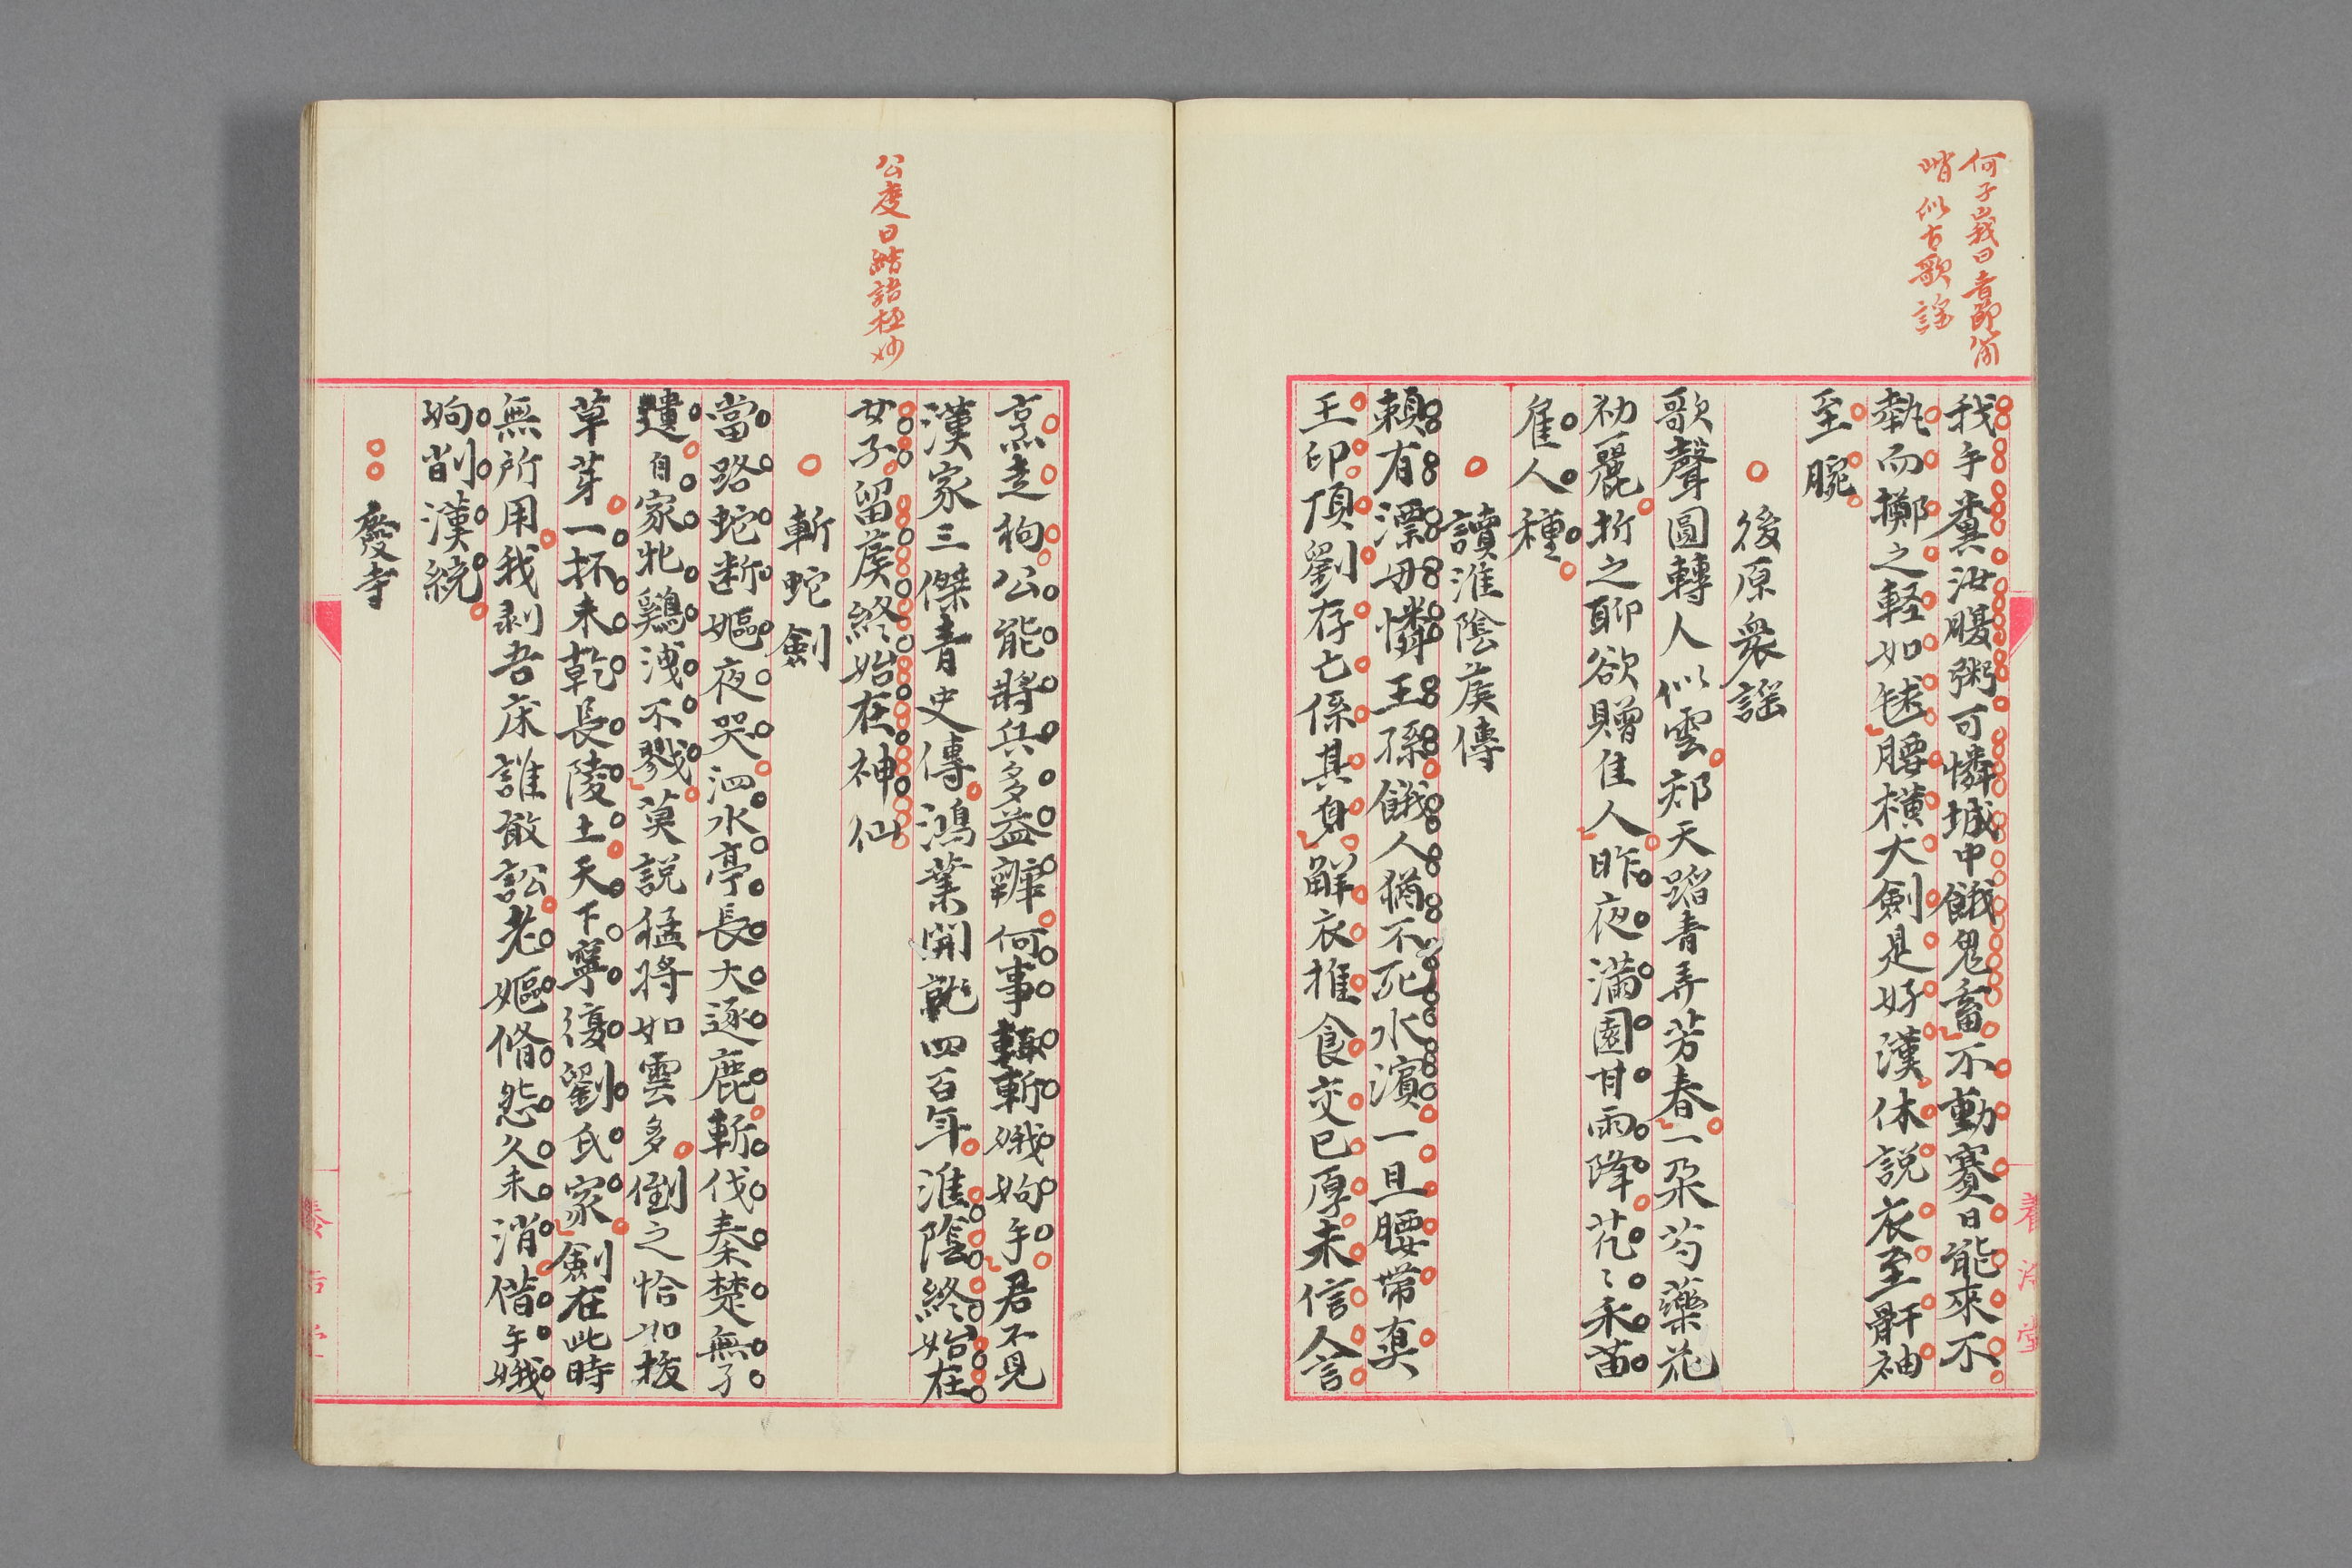 何子峩曰音節簫
哨似古歌謡
我手糞汝腸粥可憐城中餓鬼畜不動賽日能來不
執而擲之軽如毬腰横大劍是好漢休説衣至骭袖
至腕
後原衆謡
歌聲圓轉人似雲郊天蹈青弄芳春一朶芍藥花
初麗折之聊欲贈佳人昨夜滿園甘雨降花〻禾苗
隹人種
讀淮陰侯傳
頼有漂母憐王孫餓人猶不死水濱一旦腰帯真
王印頂劉存亡係其身觧衣推食交已厚未信人言
養浩堂
公度曰結語極妙
烹走狗公能將兵多益辧何事輙斬娥姁手君不見
漢家三傑青史傳鴻業開説四百年淮陰終始在
女子留侯終始在神仙
斬蛇劍
當路蛇断嫗夜哭泗水亭長大逐鹿斬伐秦楚無了
遺自家牝鷄洩不戮莫説猛将如雲多倒之恰如拔
草芽一抔未乾長陵土天下寧復劉氏家劍在此時
無所用我剥吾床誰敢訟老嫗脩怨久未消借手娥
姁削漢統
廢寺